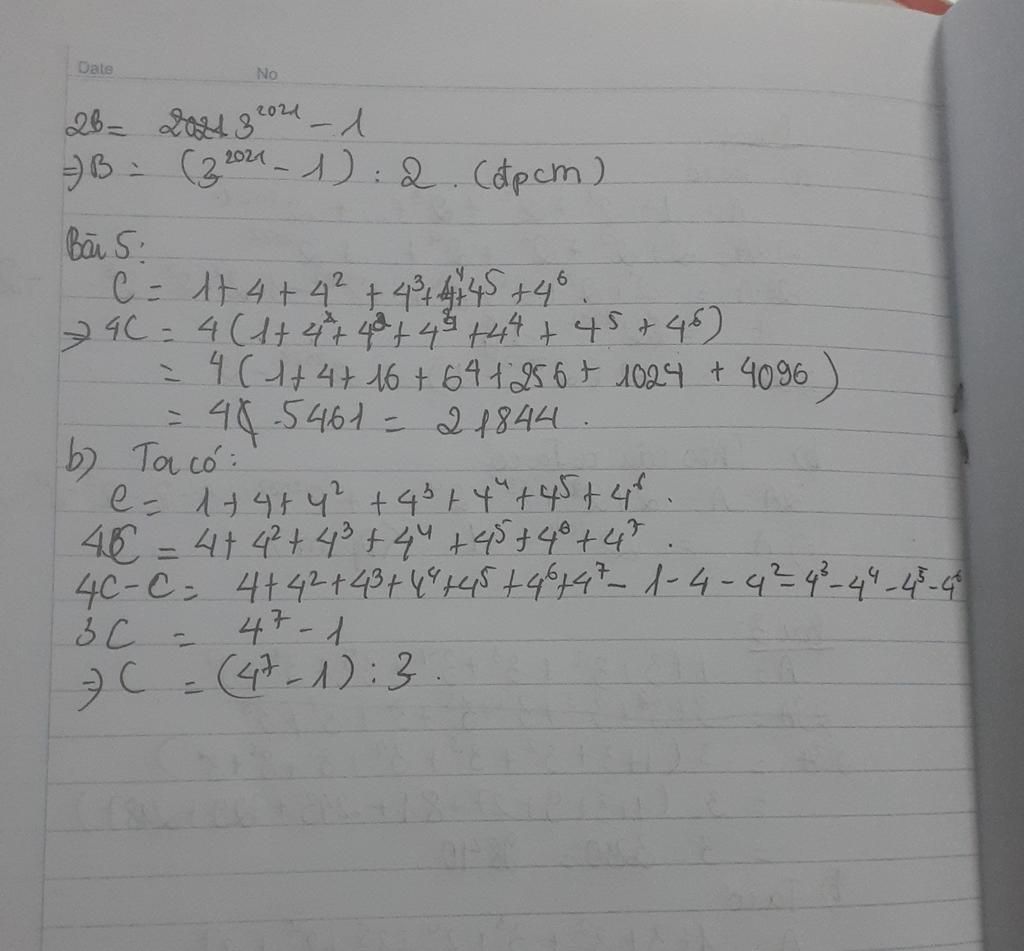 Date No
2B = 3²⁰²¹ - 1
=> B = (3²⁰²¹ - 1) : 2. (đpcm)
Bài 5:
C = 1 + 4 + 4² + 4³ + 4⁴ + 4⁵ + 4⁶.
=> 4C = 4(1 + 4 + 4² + 4³ + 4⁴ + 4⁵ + 4⁶)
= 4(1 + 4 + 16 + 64 + 256 + 1024 + 4096)
= 4 . 5461 = 21844.
b) Ta có:
C = 1 + 4 + 4² + 4³ + 4⁴ + 4⁵ + 4⁶.
4C = 4 + 4² + 4³ + 4⁴ + 4⁵ + 4⁶ + 4⁷.
4C - C = 4 + 4² + 4³ + 4⁴ + 4⁵ + 4⁶ + 4⁷ - 1 - 4 - 4² = 4³ - 4⁴ - 4⁵ - 4⁶
3C = 4⁷ - 1
=> C = (4⁷ - 1) : 3.